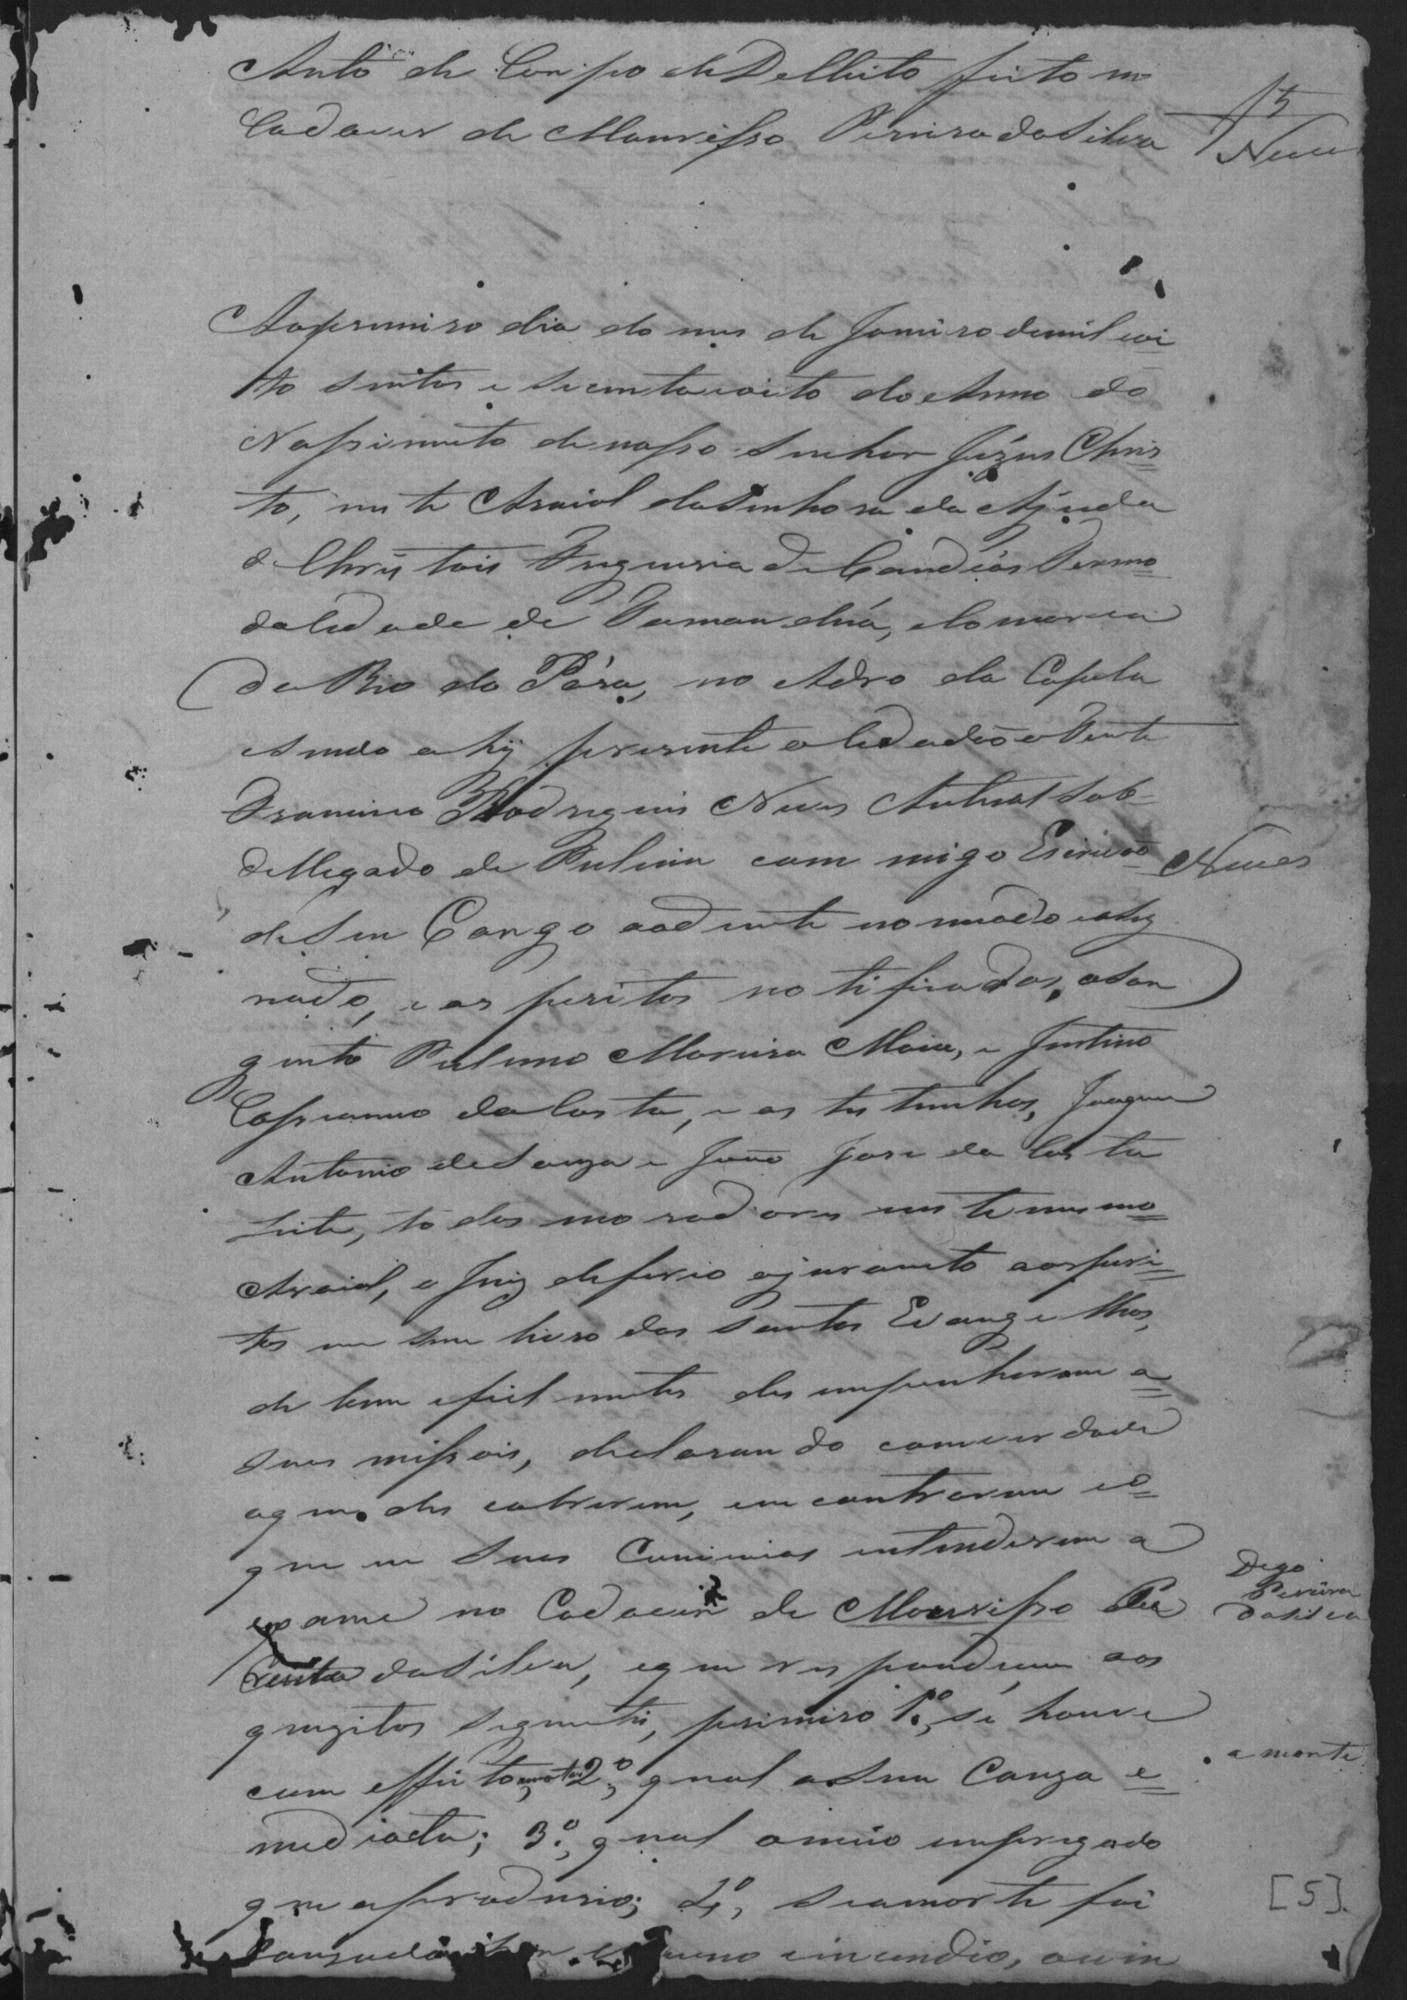 Auto de Corpo de Delleito feito no
Cadaver de Manoesso Pereira da Silva
5
Neves
Ao primeiro dia do mes de Janeiro de mil coi
to sentos e secenta e oito do Anno do
Nassimento de nosso Senhor Jezus Chris
to, neste Araial da Senhora da Ajuda
de Chrystais Freguesia de Candeas Termo
da Cidade de Tamanduá, e Comarca
do Rio do Pára, no Adro da Capela
sendo ahy prezente o Cidadão o Tenente
Francisco Rodrigues Neves Actual Sob
dellegado de Pulicia com migo Escrivão
Neves
de seu Cargo aodiente nomeado e asig
nado, e os peritos notificados, o Sar
gento Pulino Moreira Maia, e Justino
Cassianno da Costa, e as testemunhas, Joaquim
Antonio de Souza e João Jose da Costa
Leite, todos moradores neste mesmo
Araial, o Juiz deferio o juramento aos peri
tos em um livro dos Santos Evangelhos,
de bem e fielmente desempenharem a
suas missois, declarando com verdade
o que descobrirem, emcontrarem e o
que em suas Conciencias entenderem a
exame no Cadaver de Manoesso Pe
Digo
Pereira
da Silva
reira da Silva, e que respondecem aos
quezitos seguente, primeiro 1º, sé houve
com effeito, morte 2º, qual a sua Cauza e
a morte
mediata; 3º, qual o meio empregado
que a produsio; 4º, se a morte foi
[5]
cauzada por veneno eincendio, ou in